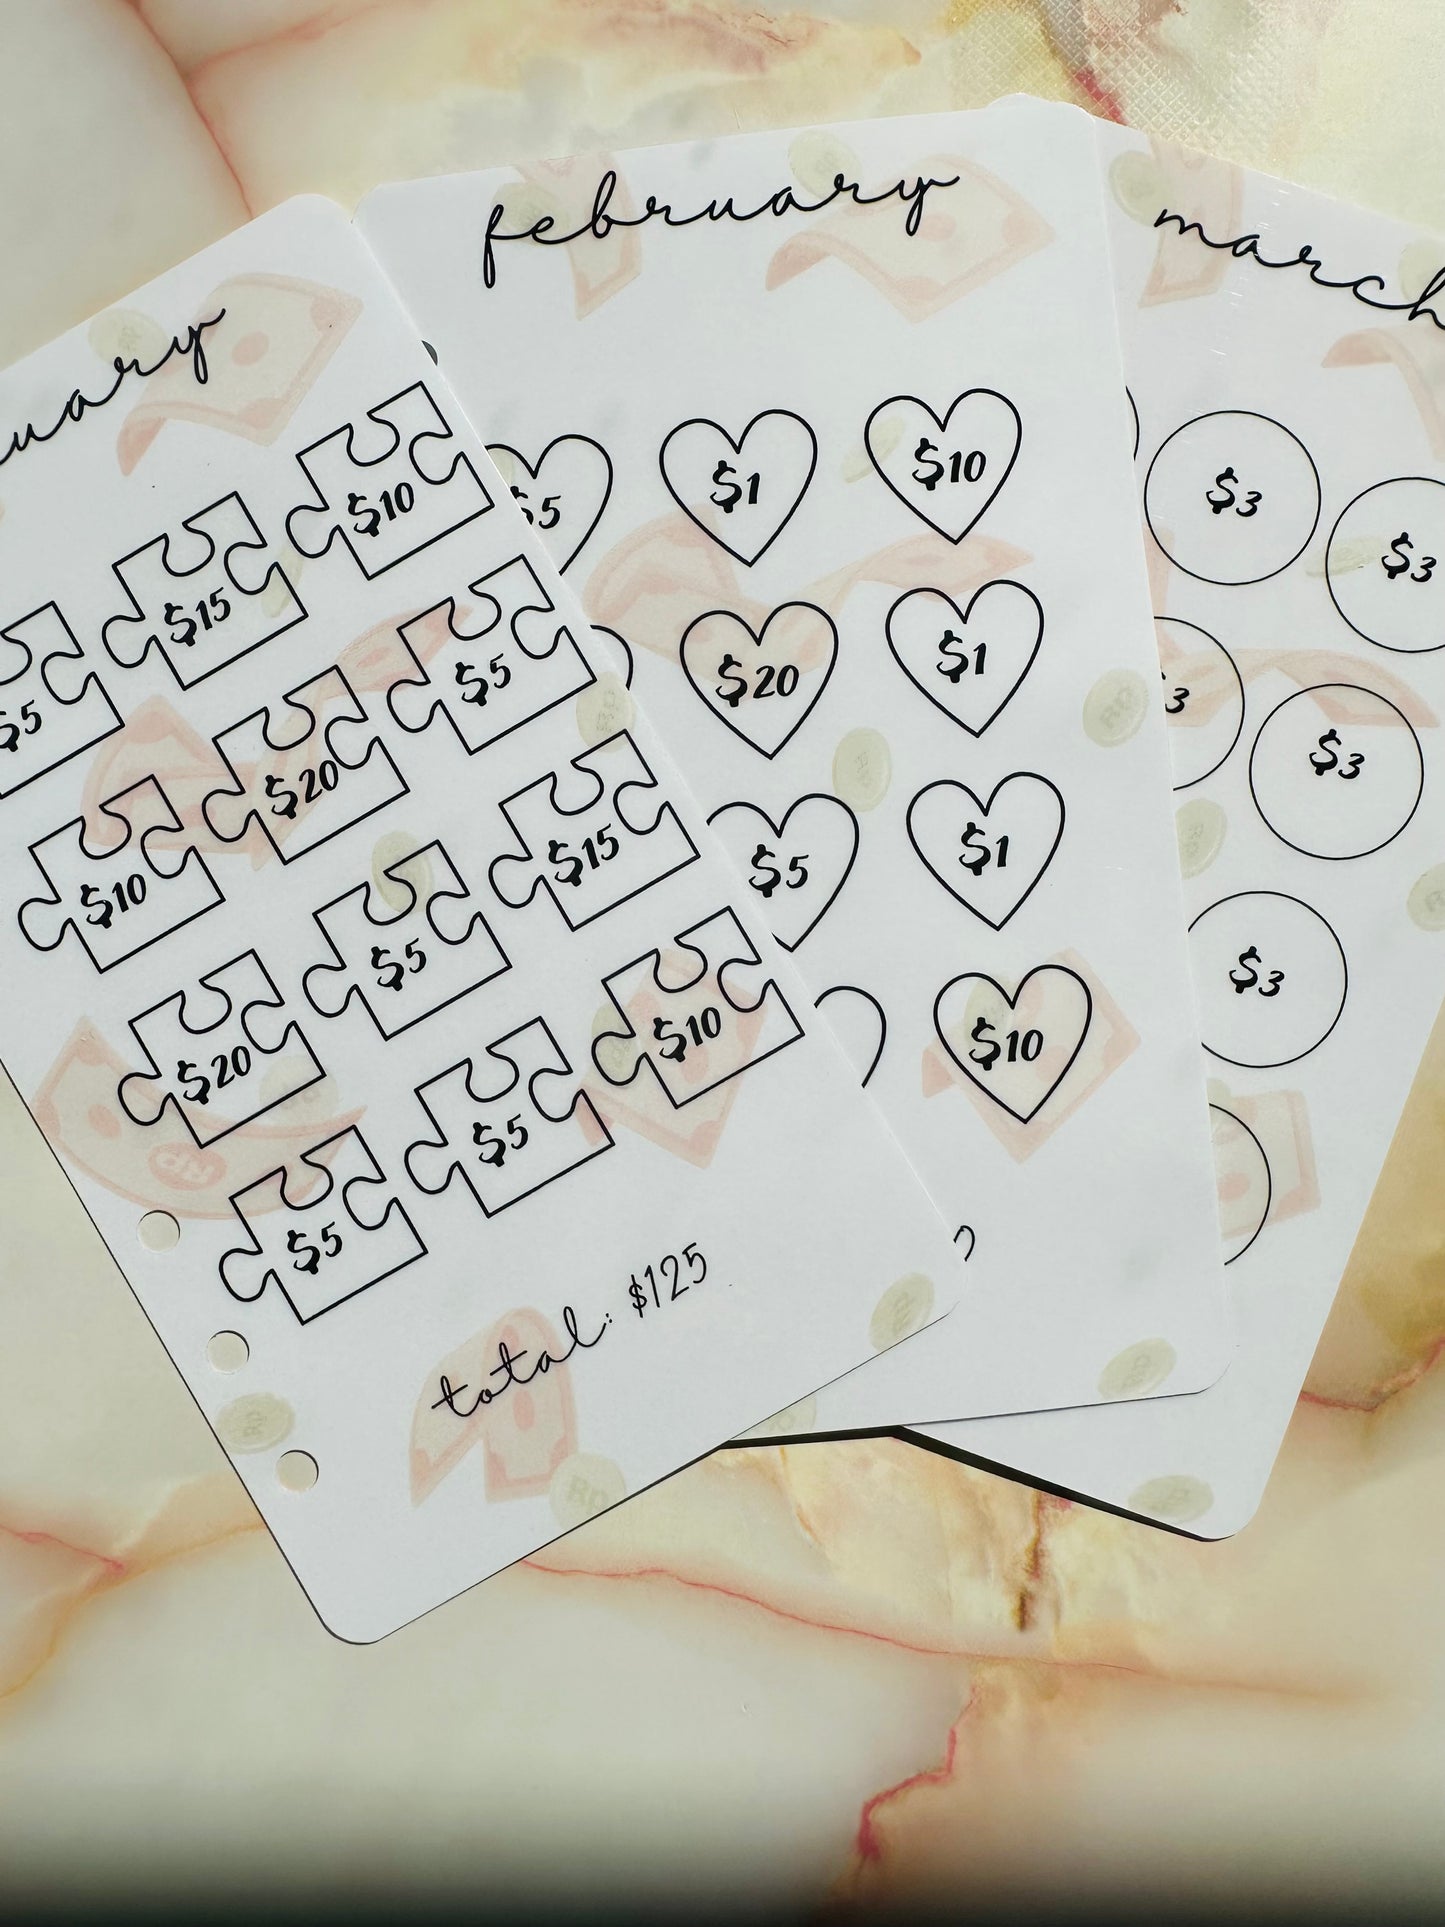 uary
$5 $15 $10
$10 $20 $5
$20 $5 $15
$5 $5 $10
total: $125
february
$5 $1 $10
$20 $1
$5 $1
$10
march
$3 $3
3 $3
$3